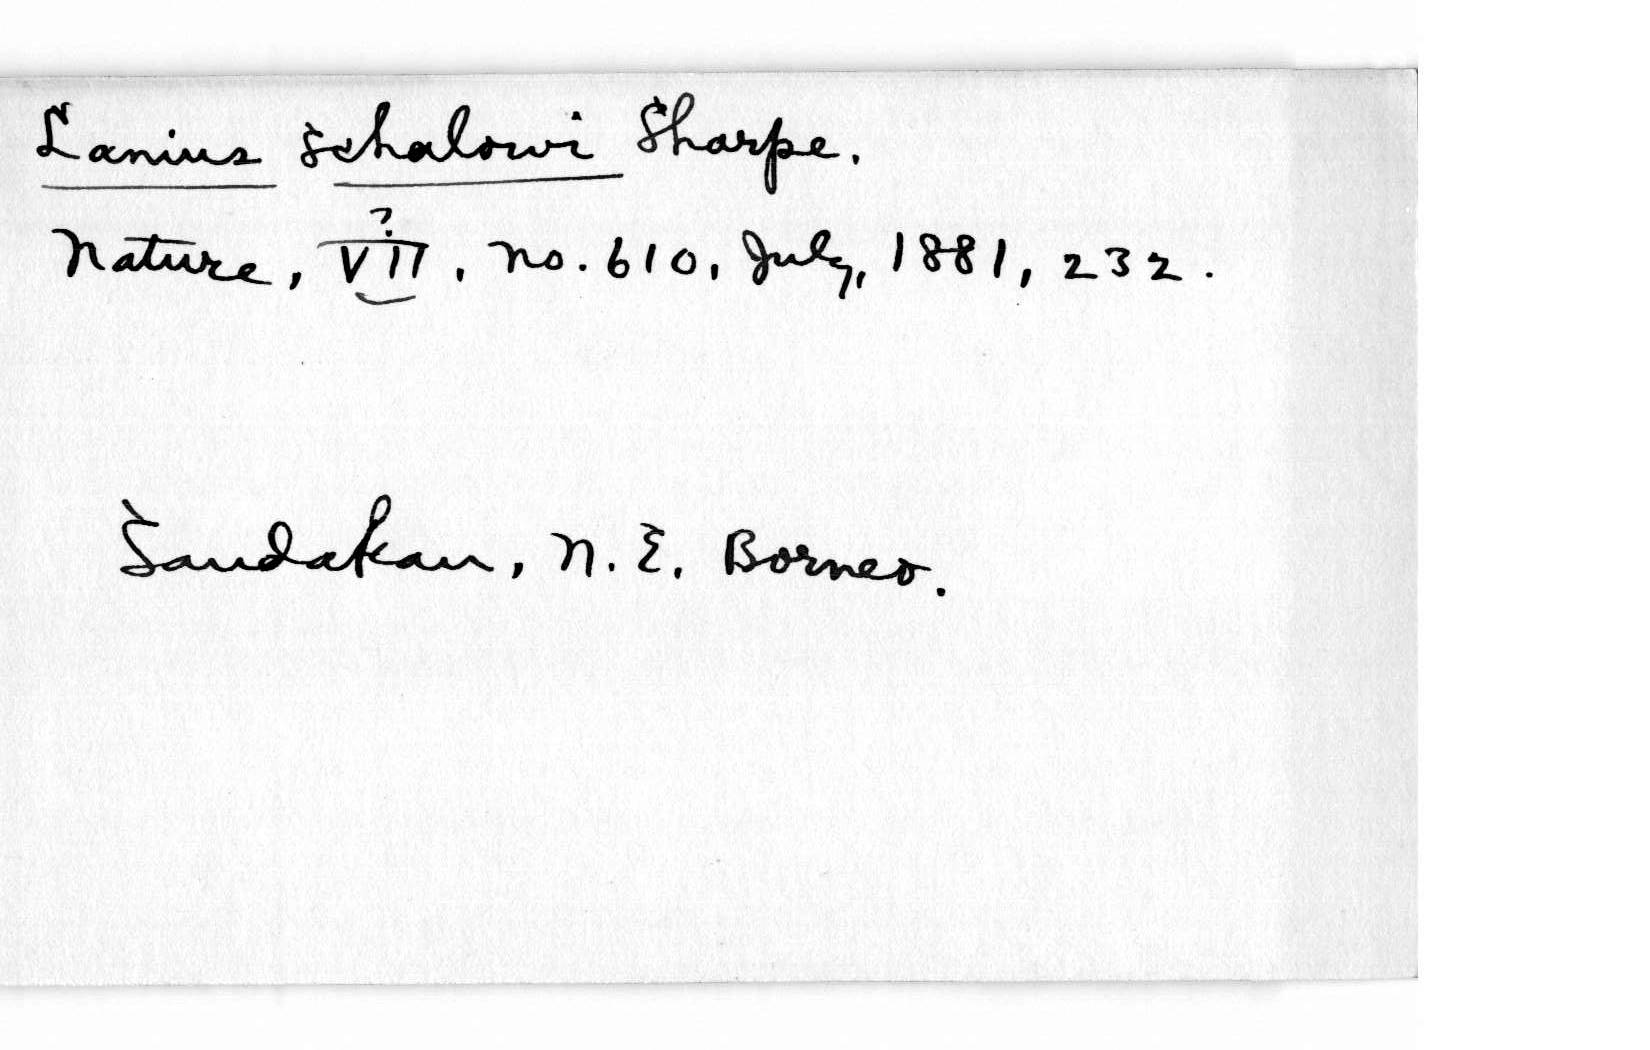 Lanius schalowi Sharpe.
Nature, VII?, no. 610, July, 1881, 232.
Sandakan, N. E. Borneo.